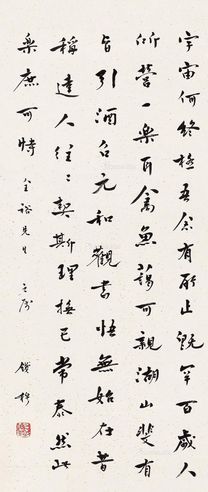 宇宙何终極吾念有所止既罕百歲人
所營一樂耳禽魚藹可親湖山斐有
旨引酒召元和觀書悟無始在昔
稱達人往々契斯理摅己常泰然此
樂庶可恃 金裕先生之属 錢穆